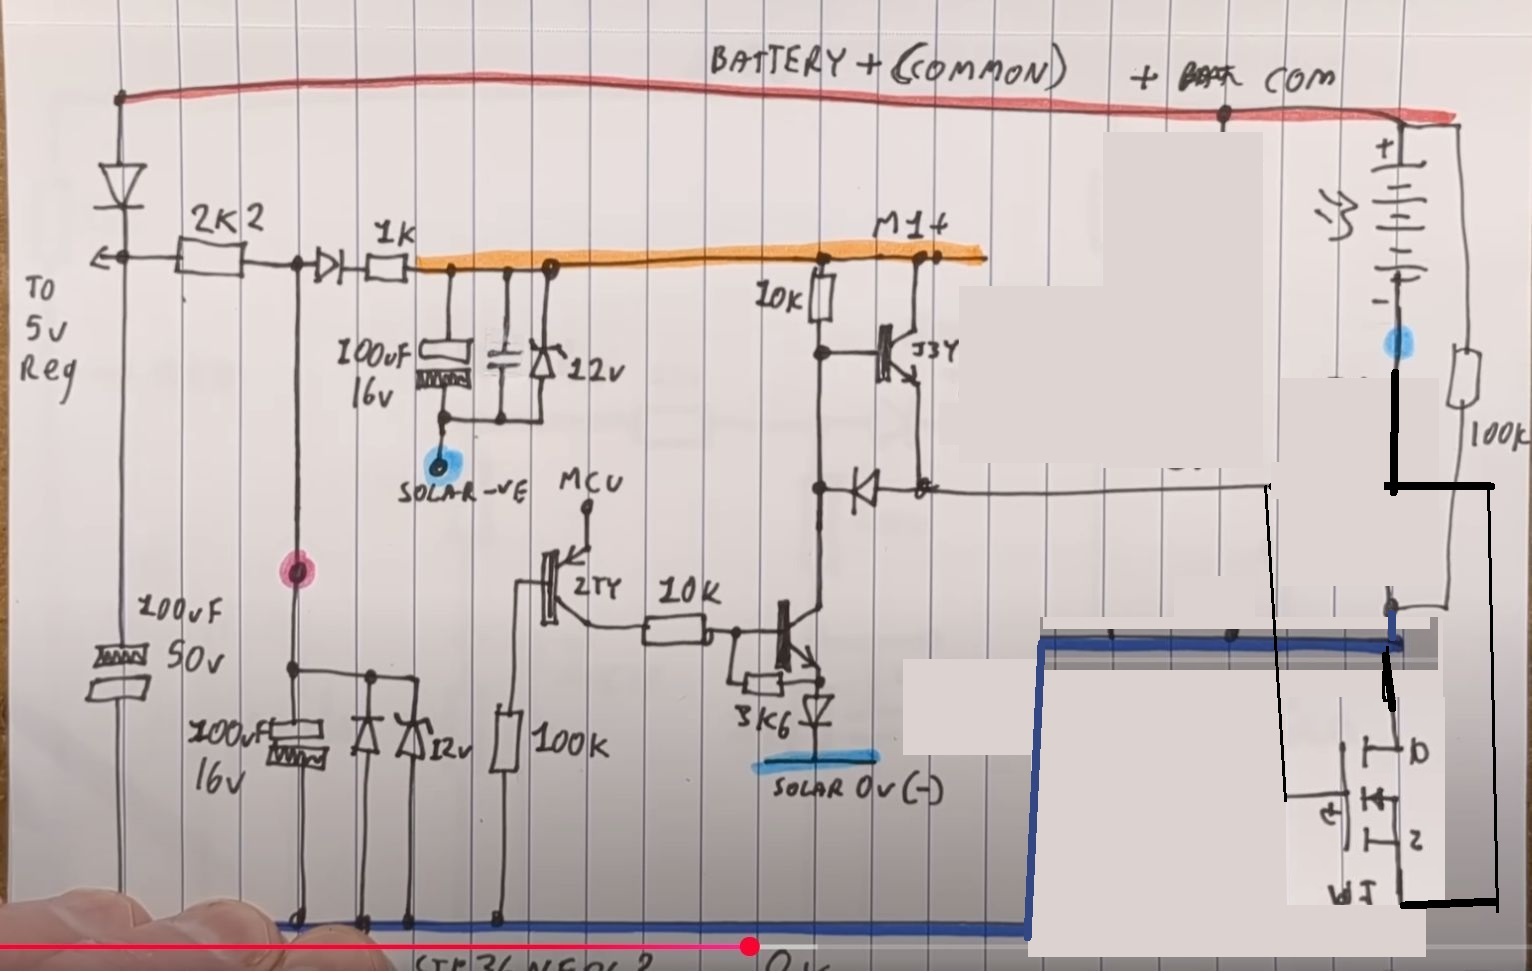 BATTERY + (COMMON)
+ BATT COM
2K2
1K
M1+
+
TO
5V
Reg
100uF
16v
12v
10K
J3Y
-
SOLAR -VE
MCU
2TY
10K
100K
100uF
50v
3K6
100uF
16v
12v
100K
SOLAR 0v (-)
D
G
S